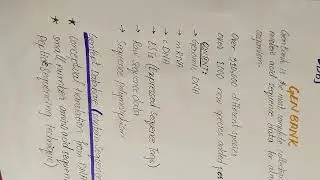 GENBANK
GenBank is most complete collection
nucleic acid sequence data for
organism.
Over 380,000 different species
over 1000 new species added per
CONTENT:
→ genomic DNA
→ mRNA
→ cDNA
→ ESTs (Expressed Sequence Tags)
→ Raw sequence data
→ Sequence Polymorphism
* Conceptual translation from DNA
* small number amino acid sequence
Peptide sequencing technique)